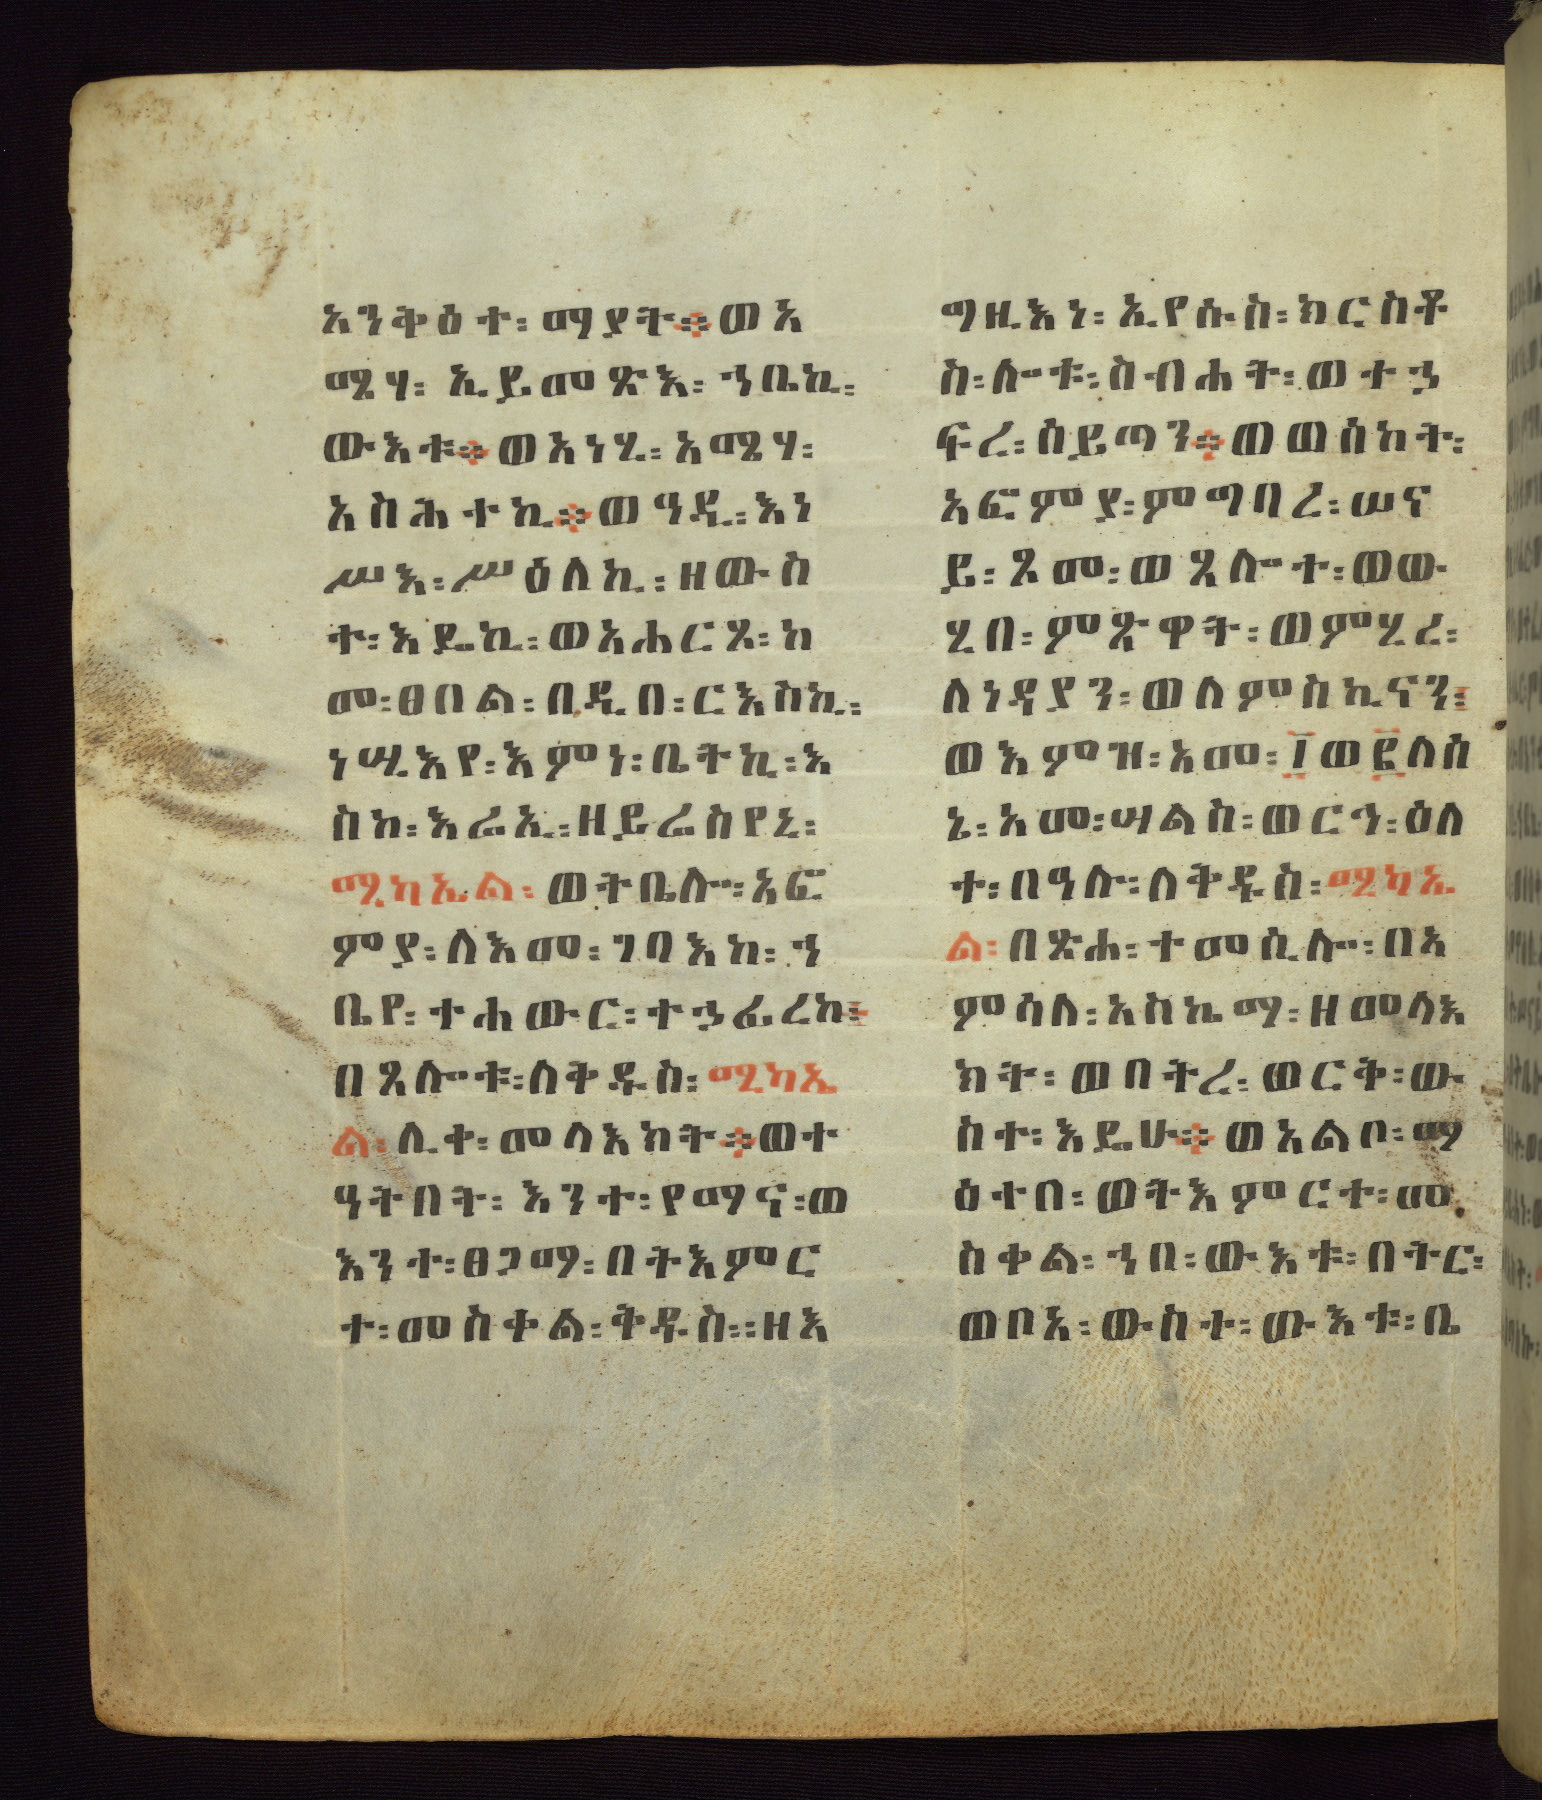 አንቅዕተ፡ ማያት። ወአ
ሜሃ፡ ኢይመጽእ፡ ኀቤኪ፡
ውእቱ። ወአነሂ፡ አሜሃ፡
አስሕተኪ። ወዓዲ፡ እነ
ሥእ፡ ሥዕለኪ፡ ዘውስ
ተ፡ እዴኪ፡ ወአሐርጾ፡ ከ
መ፡ ፀበል፡ በዲበ፡ ርእስኪ፡
ነሢእየ፡ እምነ፡ ቤትኪ፡ እ
ስከ፡ እሬኢ፡ ዘይሬስየኒ፡
ሚካኤል፡ ወትቤሎ፡ አፎ
ምያ፡ ለእመ፡ ገባእከ፡ ኀ
ቤየ፡ ተሐውር፡ ተኃፊረከ፡
በጸሎቱ፡ ለቅዱስ፡ ሚካኤ
ል፡ ሊቀ፡ መላእክት። ወተ
ዓትበት፡ እንተ፡ የማና፡ ወ
እንተ፡ ፀጋማ፡ በትእምር
ተ፡ መስቀል፡ ቅዱስ፡፡ ዘእ
ግዚእነ፡ ኢየሱስ፡ ክርስቶ
ስ፡ ሎቱ፡ ስብሐት፡ ወተኃ
ፍረ፡ ሰይጣን። ወወሰከት፡
አፎምያ፡ ምግባረ፡ ሠና
ይ፡ ጾመ፡ ወጸሎተ፡ ወው
ሂበ፡ ምጽዋት፡ ወምሂረ፡
ለነዳያን፡ ወለምስኪናን፡
ወእምዝ፡ አመ፡ ፲ወ፪ለሰ
ኔ፡ አመ፡ ሣልስ፡ ወርኅ፡ ዕለ
ተ፡ በዓሉ፡ ለቅዱስ፡ ሚካኤ
ል፡ በጽሐ፡ ተመሲሎ፡ በአ
ምሳለ፡ አስኬማ፡ ዘመላእ
ክት፡ ወበትረ፡ ወርቅ፡ ው
ስተ፡ እዴሁ። ወአልቦ፡ ማ
ዕተበ፡ ወትእምርተ፡ መ
ስቀል፡ ኀበ፡ ውእቱ፡ በትር፡
ወቦአ፡ ውስተ፡ ውእቱ፡ ቤ